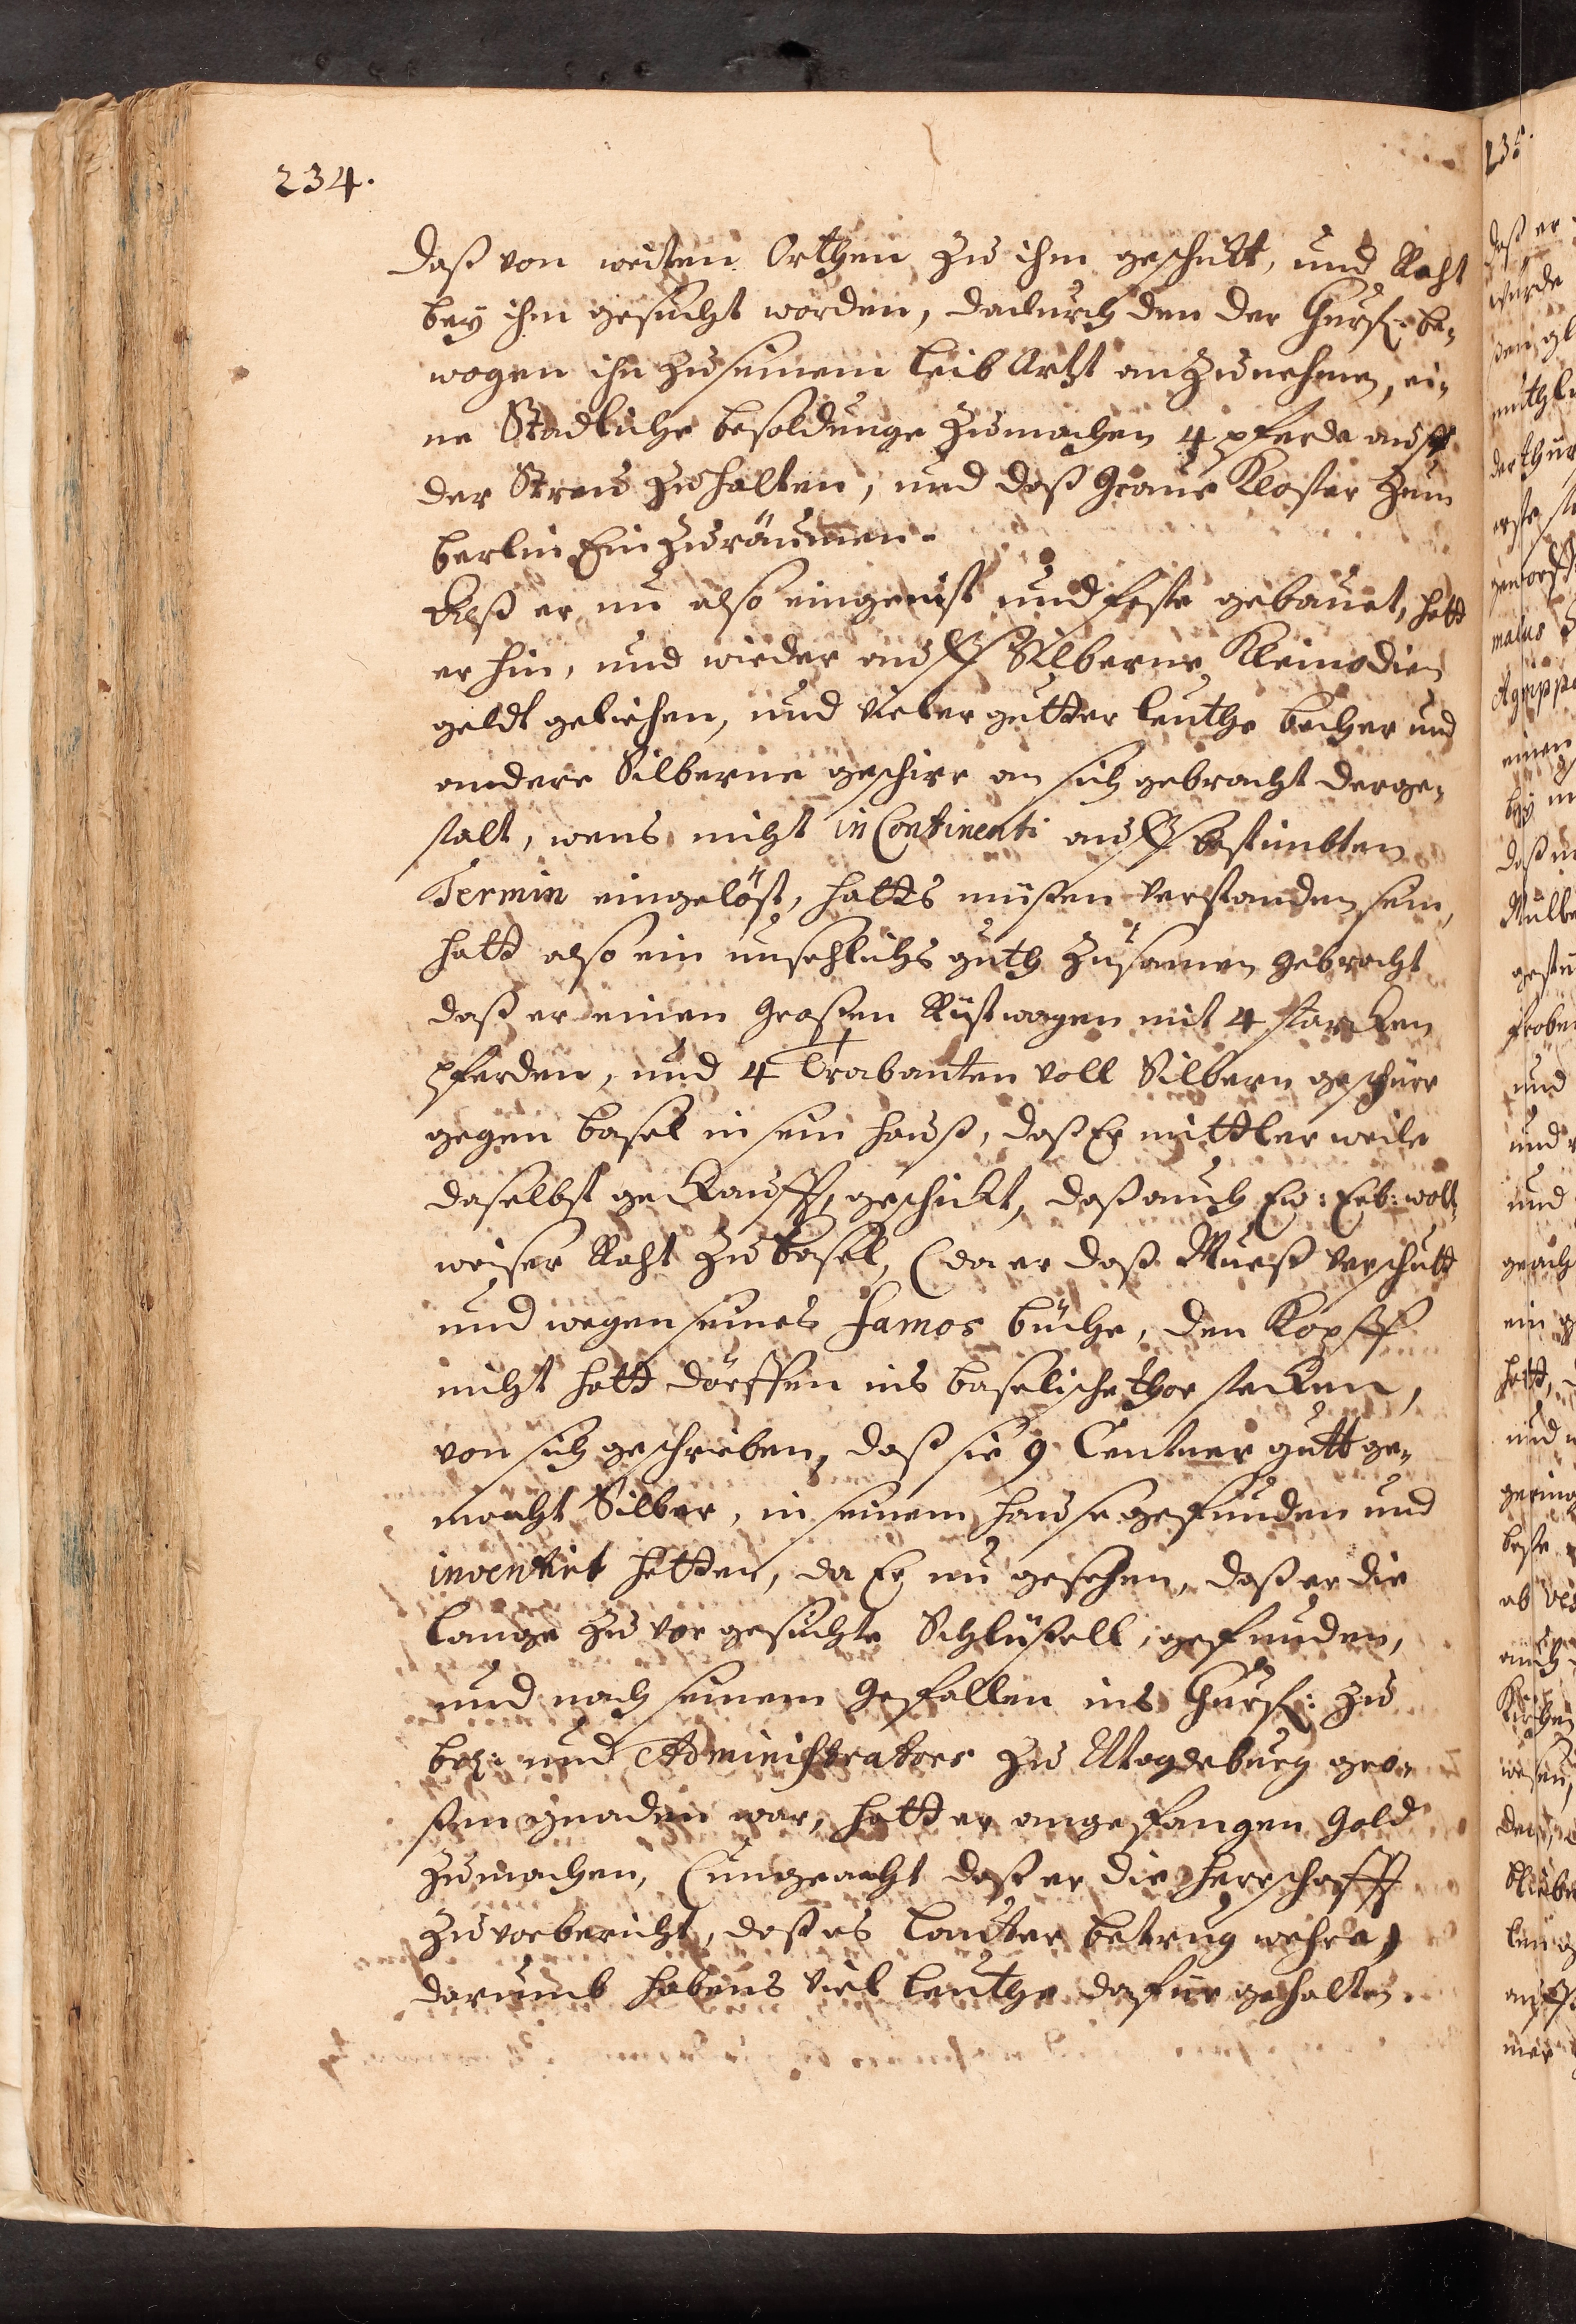 234.
daß von weiten Orthen zu ihm geschickt, und Raht
bey ihm gesucht worden, dadurch den der Churf: be-
wogen ihn zu seinem leib Artzt anzunehmen, ei-
ne Stadliche besoldunge zumachen 4 pferde auff
der Streu zu halten, und daß Graue Kloster zum
berlin Ein zuräumen.
Alß er nu also eingenist und feste gebauet, hatt
er hin, und wieder auff Silberne Kleinodien
geldt geliehen, und vieler gutter leuthe becher und
andere Silberne geschirr an sich gebracht derge-
stalt, wens nicht in Continenti auff bestimbten
Termin eingelöst, hatts müßen verstanden sein,
hatt also ein unsehlichs guth zusamen gebracht
daß er einen großen Rüstwagen mit 4 starcken
pferden, und 4 Trabanten voll Silbern geschirr
gegen basel in sein hauß, daß Er mittler weile
daselbst gekaufft, geschickt, daß auch Ew: Erb: woll-
weiser Raht zu basel, (da er daß Mueß verschutt
und wegen seines famos büche, den Kopff
nicht hatt dörffen ins baselische thor stecken,
von sich geschrieben, daß sie 9 Centner gutt ge-
macht Silber, in seinem hause gefunden und
inventirt hetten, da Er nu gesehen, daß er die
lange zuvor gesuchte Schlüßell, gefunden,
und nach seinem gefallen ins Churf: zu
brz: und Administrators zu Magdeburg gro-
ßen gnaden war, hatt er angefangen gold
zumachen, (ungeacht daß er die herrschafft
zuvor bericht, daß es lauter betrug wehre,)
darumb habens viel leuthe dafür gehalten.
235.
daß er
wurde